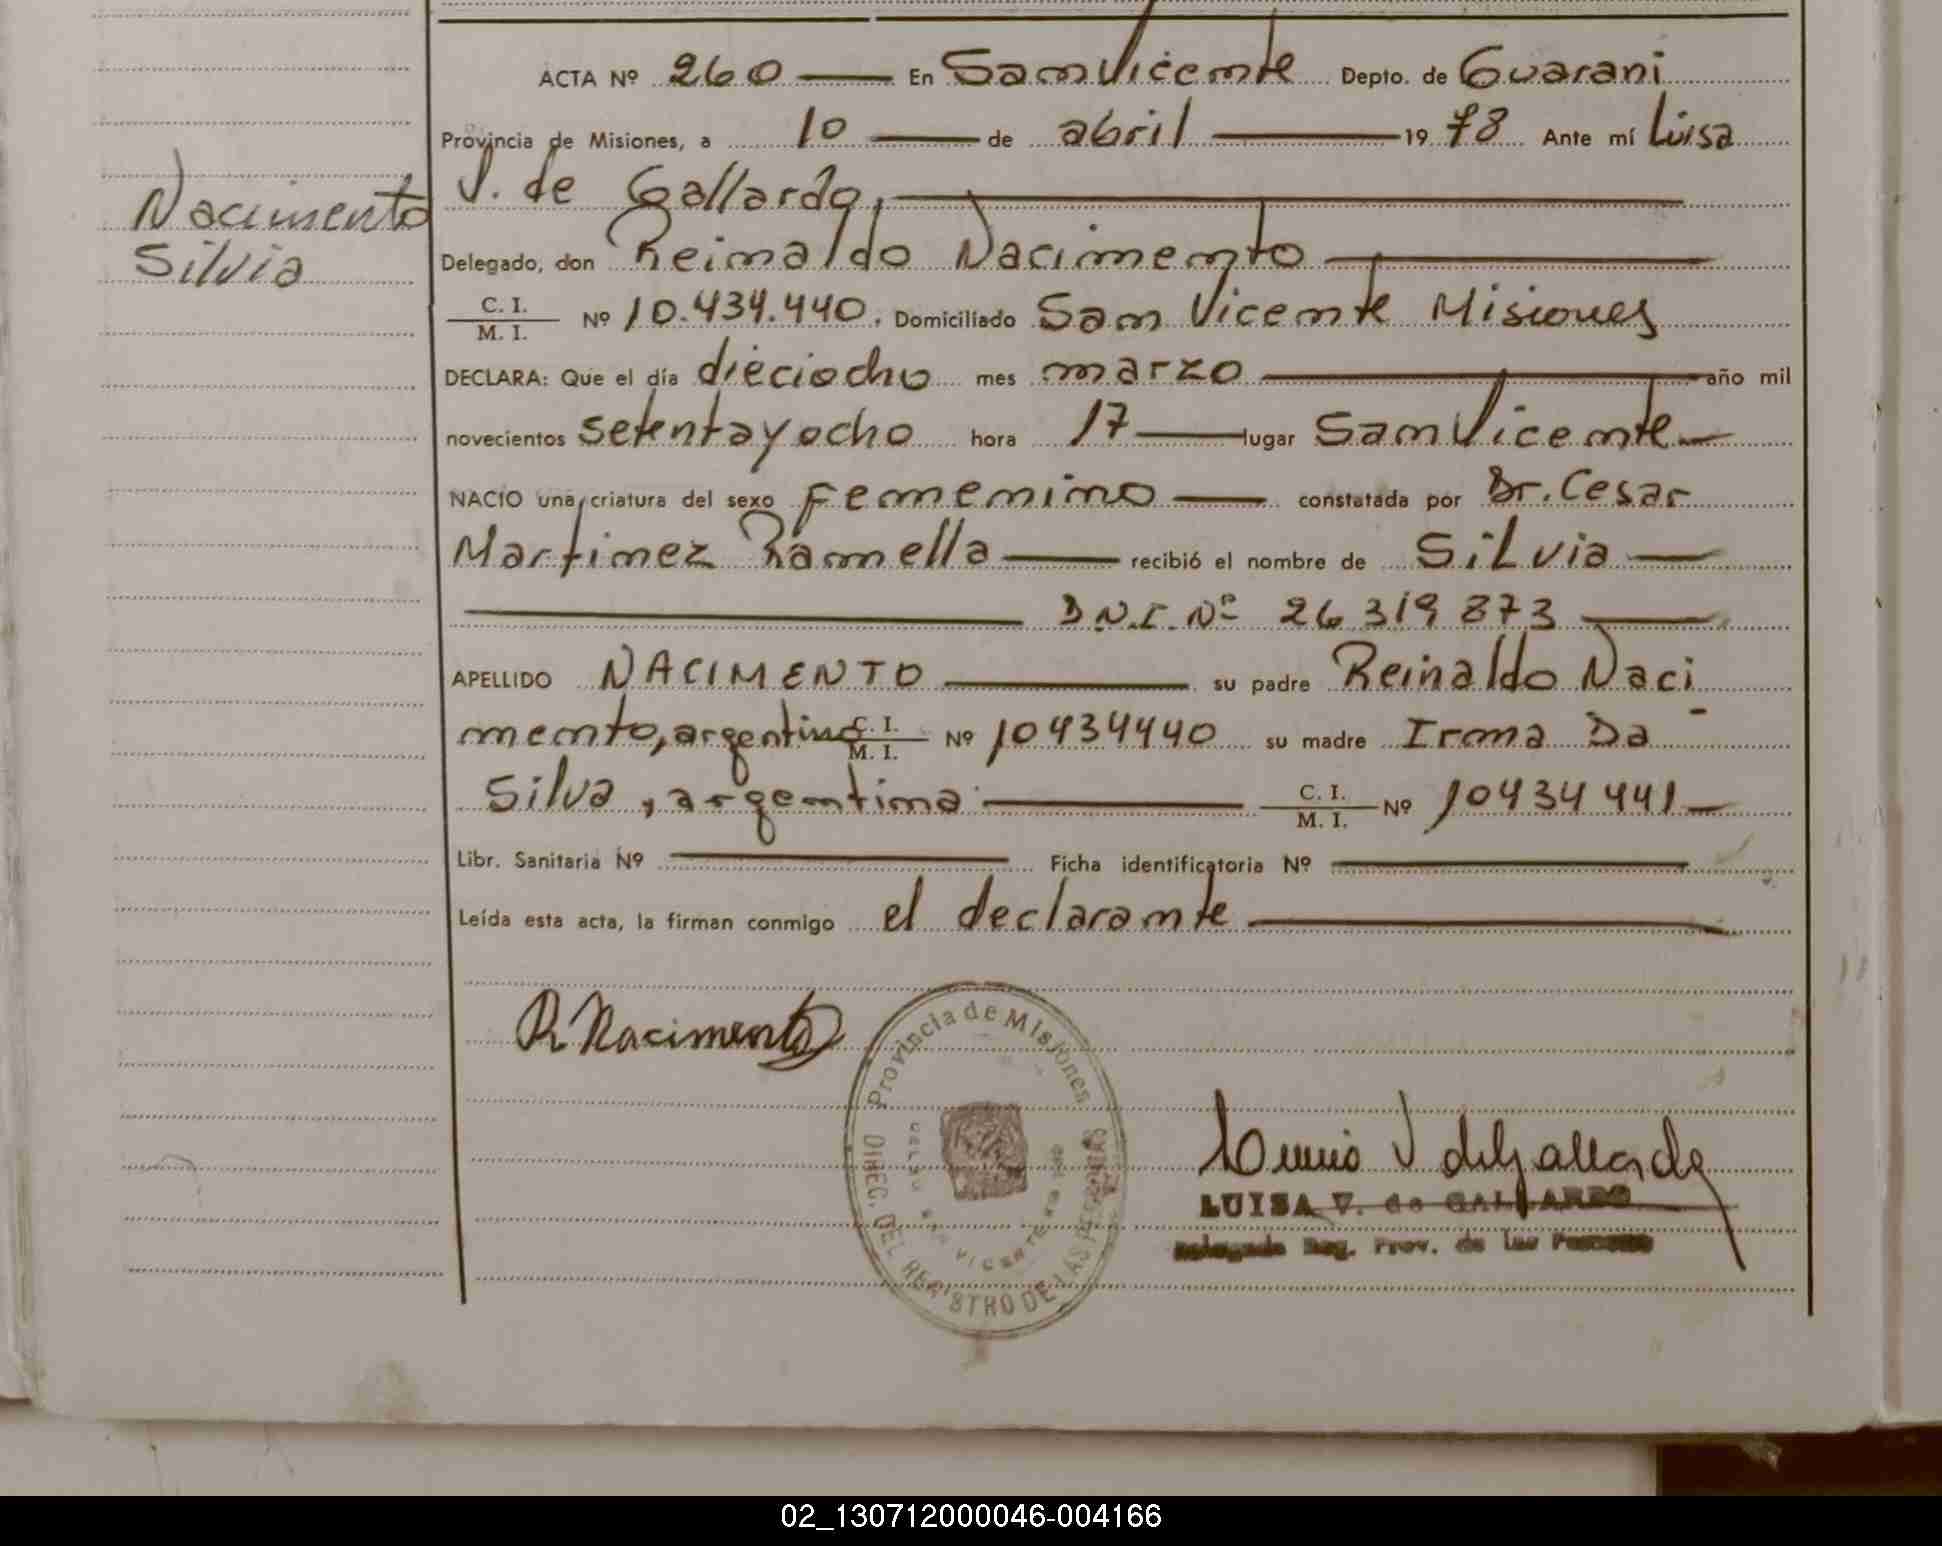 ACTA Nº 260 En San Vicente Depto. de Guarani
Provincia de Misiones, a 10 de abril 1978 Ante mí Luisa
V. de Gallardo,
Nacimento
Silvia
Delegado, don Reinaldo Nacimento
C. I.
M. I. Nº 10.434.440. Domiciliado San Vicente Misiones
DECLARA: Que el día dieciocho mes marzo año mil
novecientos setenta y ocho hora 17 lugar San Vicente
NACIO una criatura del sexo femenino constatada por Dr. Cesar
Martinez Ramella recibió el nombre de SiLvia
D.N.I. Nº 26 319 873
APELLIDO NACIMENTO su padre Reinaldo Naci
mento, argentino C. I. M. I. Nº 10434440 su madre Irma Da
Silva, argentina C. I. M. I. Nº 10434441
Libr. Sanitaria Nº Ficha identificatoria Nº
Leída esta acta, la firman conmigo el declarante
R Nacimento
Provincia de Misiones
DIREC. DEL REGISTRO DE LAS PERSONAS
SAN VICENTE
LUISA V. de GALLARDO
Delegada Reg. Prov. de las Personas
02_130712000046-004166